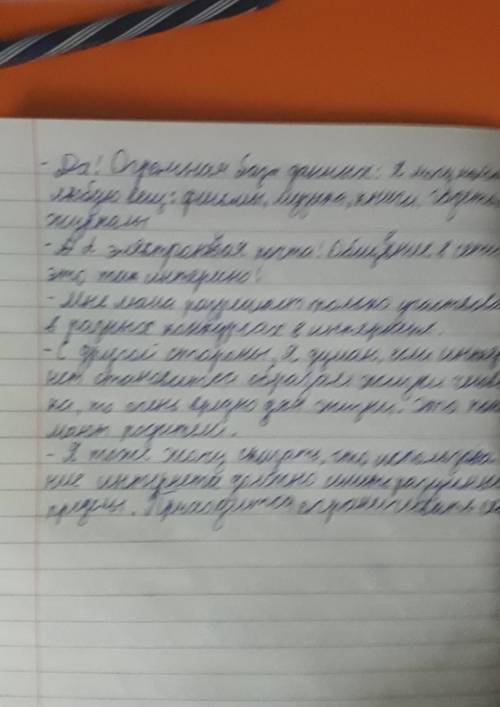 - Да! Огромная база данных: Я могу
любую вещ: фильмы, музыка, книги,
журналы
- А электронная почта! Общение в
это так интересно!
- Мне мама разрешает только участвова
в разных конкурсах в интернете.
- С другой стороны, я думаю, интер
нет становится образом жизни
ка, то очень вредно для жизни. Это
мают родители.
- Я тоже хочу сказать, что использова
ние интернета должно иметь разумные
пределы. Приходится ограничивать се